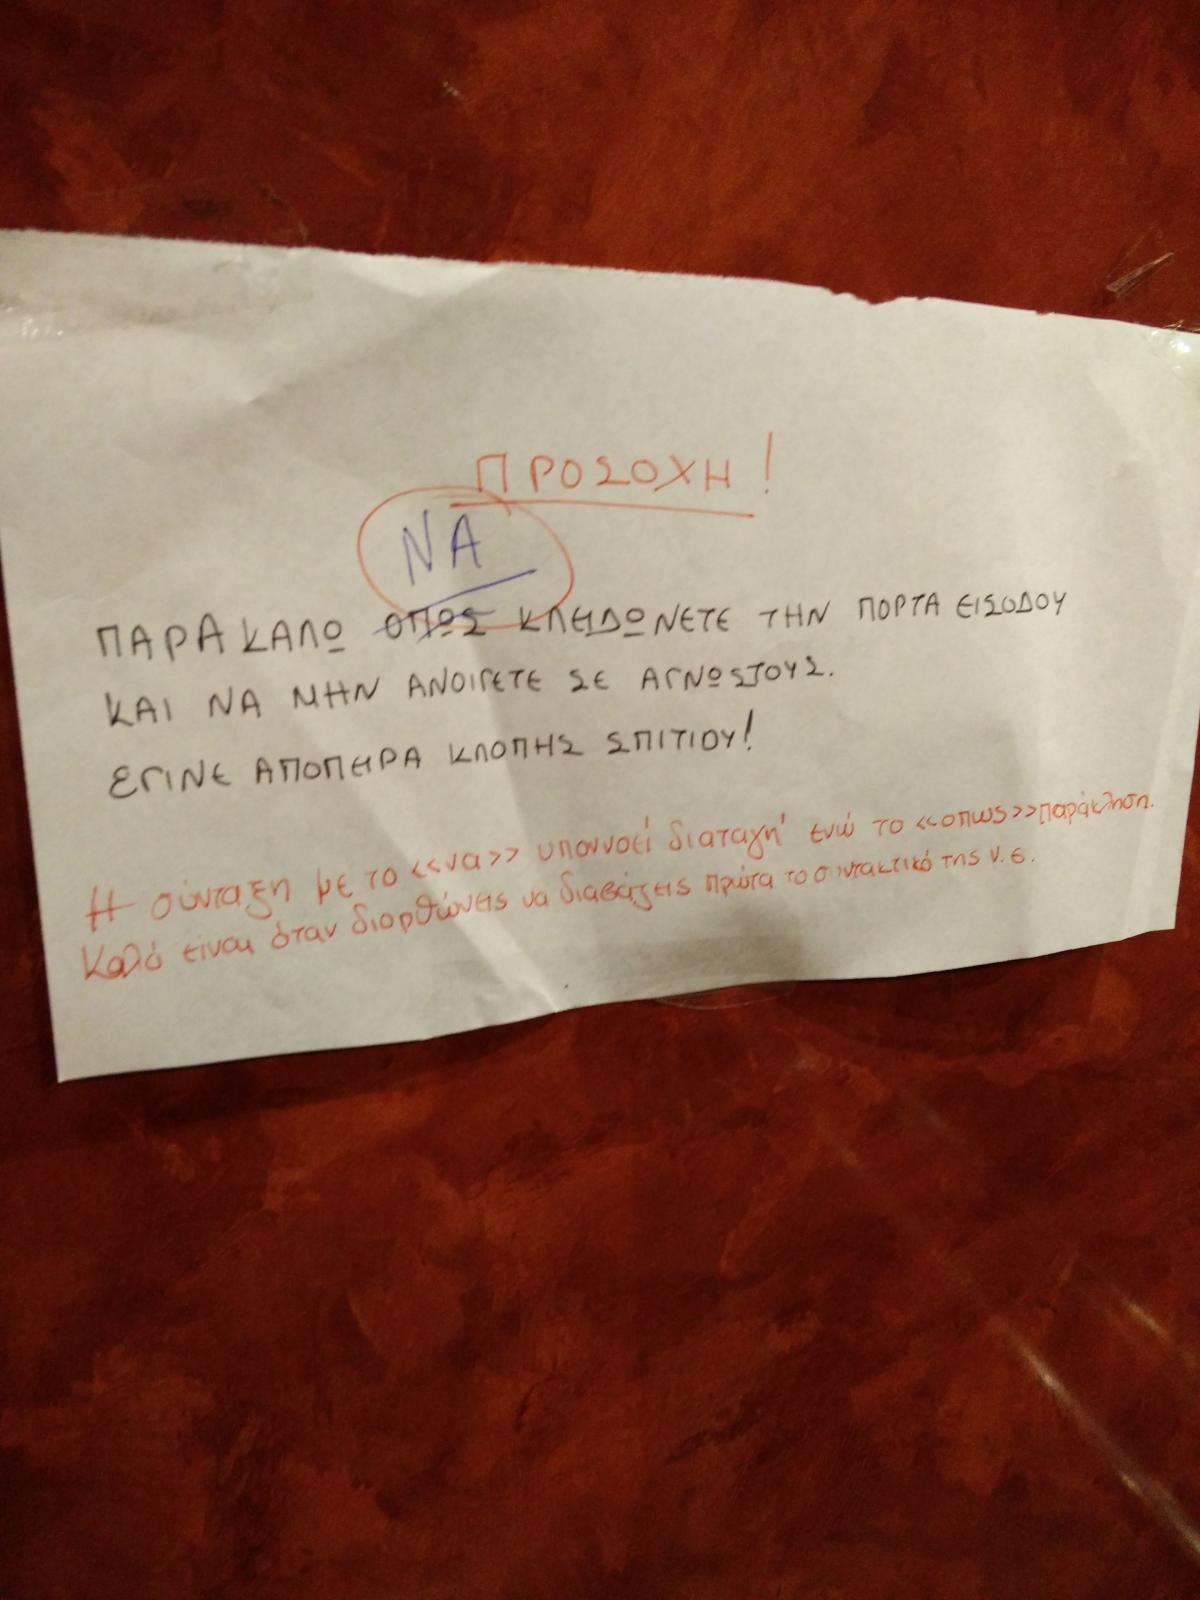 ΠΡΟΣΟΧΗ!
ΝΑ
ΠΑΡΑΚΑΛΩ ΟΠΩΣ ΚΛΕΙΔΩΝΕΤΕ ΤΗΝ ΠΟΡΤΑ ΕΙΣΟΔΟΥ
ΚΑΙ ΝΑ ΜΗΝ ΑΝΟΙΓΕΤΕ ΣΕ ΑΓΝΩΣΤΟΥΣ.
ΕΓΙΝΕ ΑΠΟΠΕΙΡΑ ΚΛΟΠΗΣ ΣΠΙΤΙΟΥ!
Η σύνταξη με το <<να>> υπονοεί διαταγή ενώ το <<οπως>> παράκληση.
Καλό είναι όταν διορθώνεις να διαβάζεις πρώτα το συντακτικό της ν.ε.